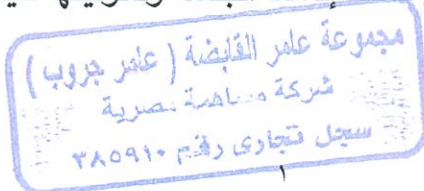 مجموعة عامر القابضة (عامر جروب)
شركة مساهمة مصرية
سجل تجارى رقم ٣٨٥٩١٠
١